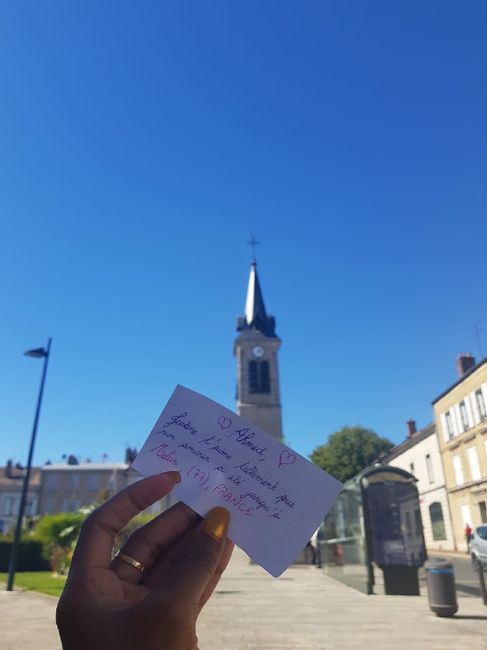 ♡ Ahmed, ♡
Justine t'aime tellement que
son amour a été jusqu'à
Melun, (77), FRANCE